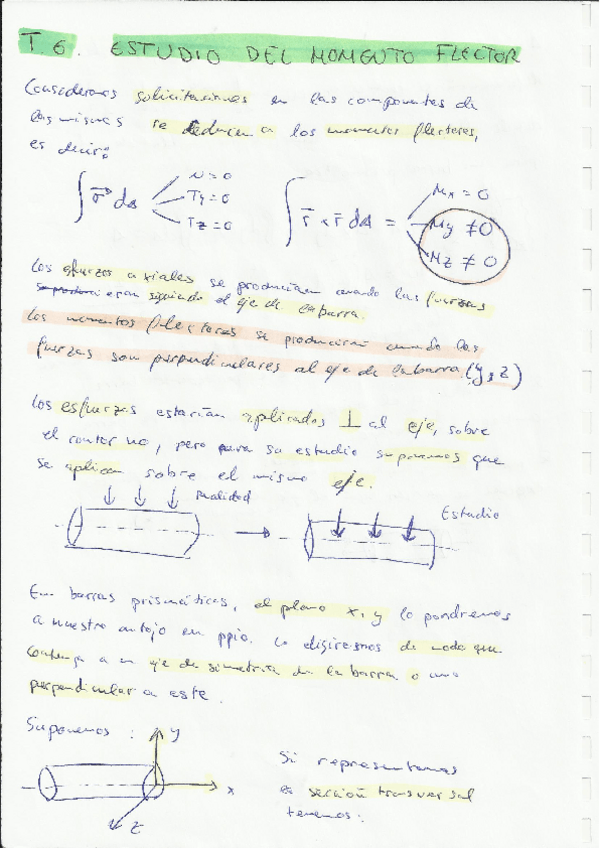 T.6. ESTUDIO DEL MOMENTO FLECTOR
Consideramos solicitaciones en las componentes de
las mismas se deducen a los momentos flectores,
es decir:
∫ σ⃗ dΩ N=0 Ty=0 Tz=0
∫ r⃗ x r⃗ dΩ = Mx=0 My≠0 Mz≠0
Los esfuerzos axiales se producían cuando las fuerzas
eran siguiendo el eje de la barra.
Los momentos flectores se producirán cuando las
fuerzas son perpendiculares al eje de la barra (y, z)
Los esfuerzos estarían aplicados ⊥ al eje, sobre
el contorno, pero para su estudio suponemos que
se aplican sobre el mismo eje.
Realidad
Estudio
En barras prismáticas, el plano x, y lo pondremos
a nuestro antojo en ppio. Lo eligiremos de modo que
contenga a un eje de simetría de la barra o uno
perpendicular a este.
Suponemos : y
x
z
Si representamos
la sección transversal
tenemos: